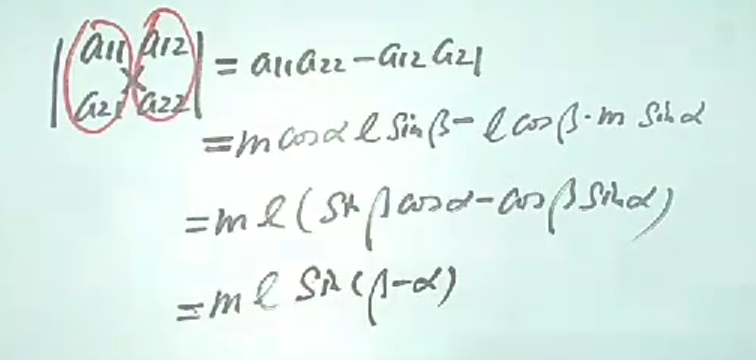 |a11 a12|
|a21 a22| = a11a22 - a12a21
= m cosα l sinβ - l cosβ · m sinα
= m l (sinβ cosα - cosβ sinα)
= m l sin(β-α)